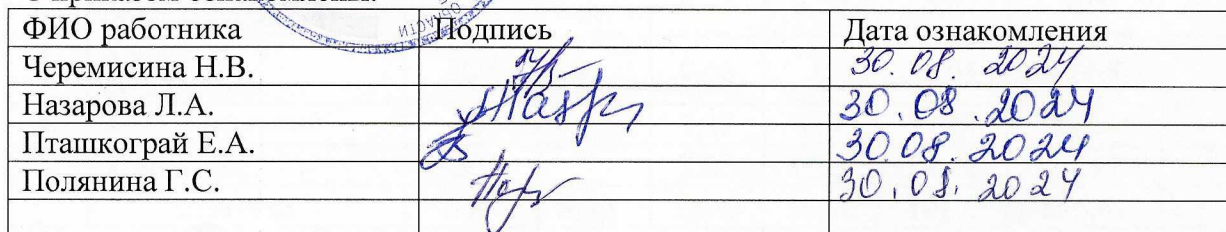 ОБЛАСТИ
ФИО работника Подпись Дата ознакомления
Черемисина Н.В. 30.08.2024
Назарова Л.А. 30.08.2024
Пташкограй Е.А. 30.08.2024
Полянина Г.С. 30.08.2024